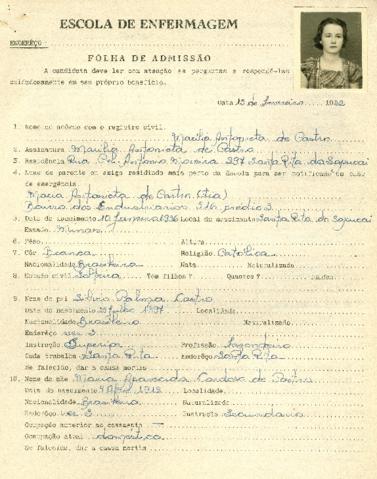 ESCOLA DE ENFERMAGEM
ENDEREÇO
FOLHA DE ADMISSÃO
A candidata deve ler com atenção as perguntas e respondê-las
em seu próprio benefício.
Data 15 de fevereiro
1. Nome de acôrdo com o registro civil.
Marilia Antonieta de Castro
2. Assinatura Marilia Antonieta de Castro
3. Residência Rua Antonio Moreira 297 Santa Rita do Sapucaí
4. Nome de parente ou amigo residindo mais perto da Escola para ser notificado em caso
de emergência
Maria Antonieta de Castro (tia)
Bairro dos Industriários
5. Data do nascimento 10 fevereiro 1936 Local do nascimento Santa Rita do Sapucaí
Estado Minas
6. Pêso Altura
7. Côr Branca Religião Católica
Nacionalidade Brasileira Nata Naturalizada
8. Estado civil Solteira Tem filhos? Quantos? Idades
9. Nome do pai Palma Castro
Data do nascimento julho 1897 Localidade
Nacionalidade Brasileiro Naturalizado
Endereço
Instrução Superior Profissão
Onde trabalha Santa Rita Endereço Santa Rita
Se falecido, dar a causa mortis
10. Nome da mãe Maria Aparecida Cardoso de Castro
Data do nascimento Abril 1912 Localidade
Nacionalidade Brasileira Naturalizada
Endereço Instrução Secundária
Ocupação anterior ao casamento
Ocupação atual doméstica
Se falecida, dar causa mortis